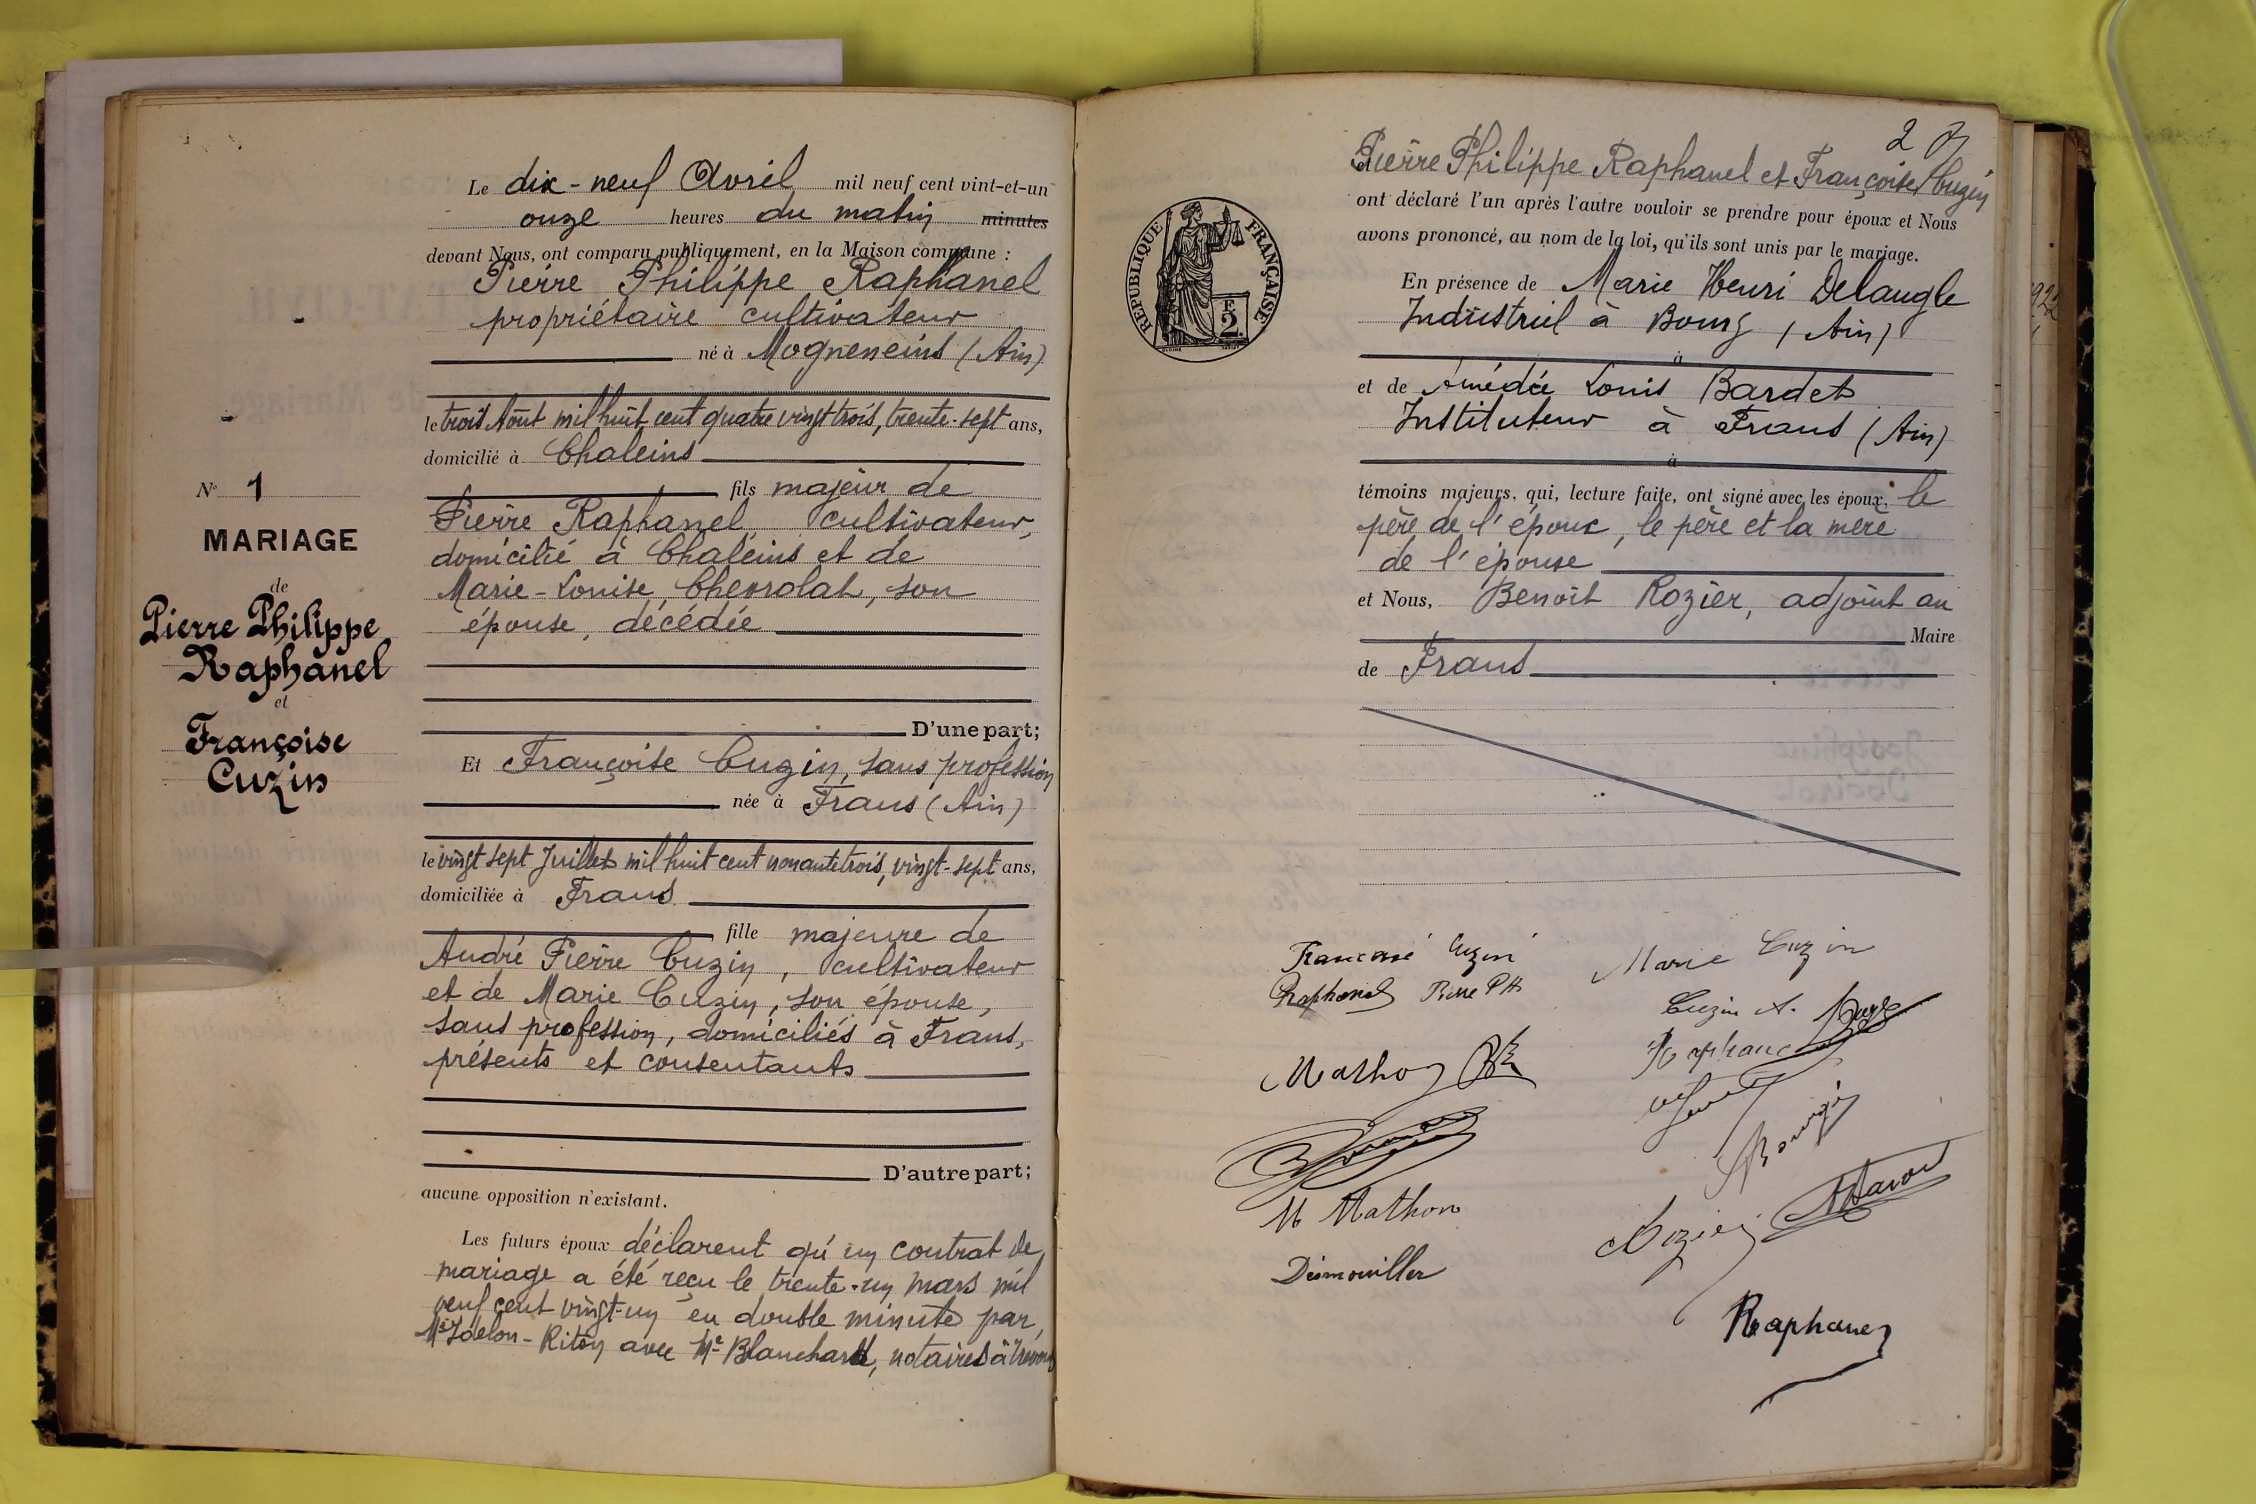 Le dix-neuf Avril mil neuf cent vint-et-un
onze heures du matin minutes
devant Nous, ont comparu publiquement, en la Maison commune :
Pierre Philippe Raphanel
propriétaire cultivateur
né à Mogneneins (Ain)
le trois Août mil huit cent quatre vingt trois, trente-sept ans,
domicilié à Chaleins
fils majeur de
Pierre Raphanel, cultivateur,
domicilié à Chaleins et de
Marie-Louise Chevrolat, son
épouse, décédée
D'une part;
Et Françoise Cuzin, sans profession
née à Frans (Ain)
le vingt sept Juillet mil huit cent nonante trois, vingt-sept ans,
domiciliée à Frans
fille majeure de
André Pierre Cuzin, cultivateur
et de Marie Cuzin, son épouse,
sans profession, domiciliés à Frans,
présents et consentants
D'autre part;
aucune opposition n'existant.
Les futurs époux déclarent qu'un contrat de
mariage a été reçu le trente-un mars mil
neuf cent vingt-un en double minute par
Me avec Me Blanchard, notaires à Trévoux
N° 1
MARIAGE
de
Pierre Philippe
Raphanel
et
Françoise
Cuzin
2
et
Pierre Philippe Raphanel et Françoise Cuzin
ont déclaré l'un après l'autre vouloir se prendre pour époux et Nous
avons prononcé, au nom de la loi, qu'ils sont unis par le mariage.
RÉPUBLIQUE FRANÇAISE
2
En présence de Marie Henri Delaugle
Industriel à Bourg (Ain)
à
et de Amédée Louis Bardet
Instituteur à Frans (Ain)
à
témoins majeurs, qui, lecture faite, ont signé avec les époux, le
père de l'époux, le père et la mère
de l'épouse
et Nous, Benoît Rozier, adjoint au
Maire
de Frans
Cuzin Marie Cuzin
Raphanel Pierre Ph
Cuzin A.
Mathon
Raphanel
M Mathon
Rozier
Dismouiller
Raphanel